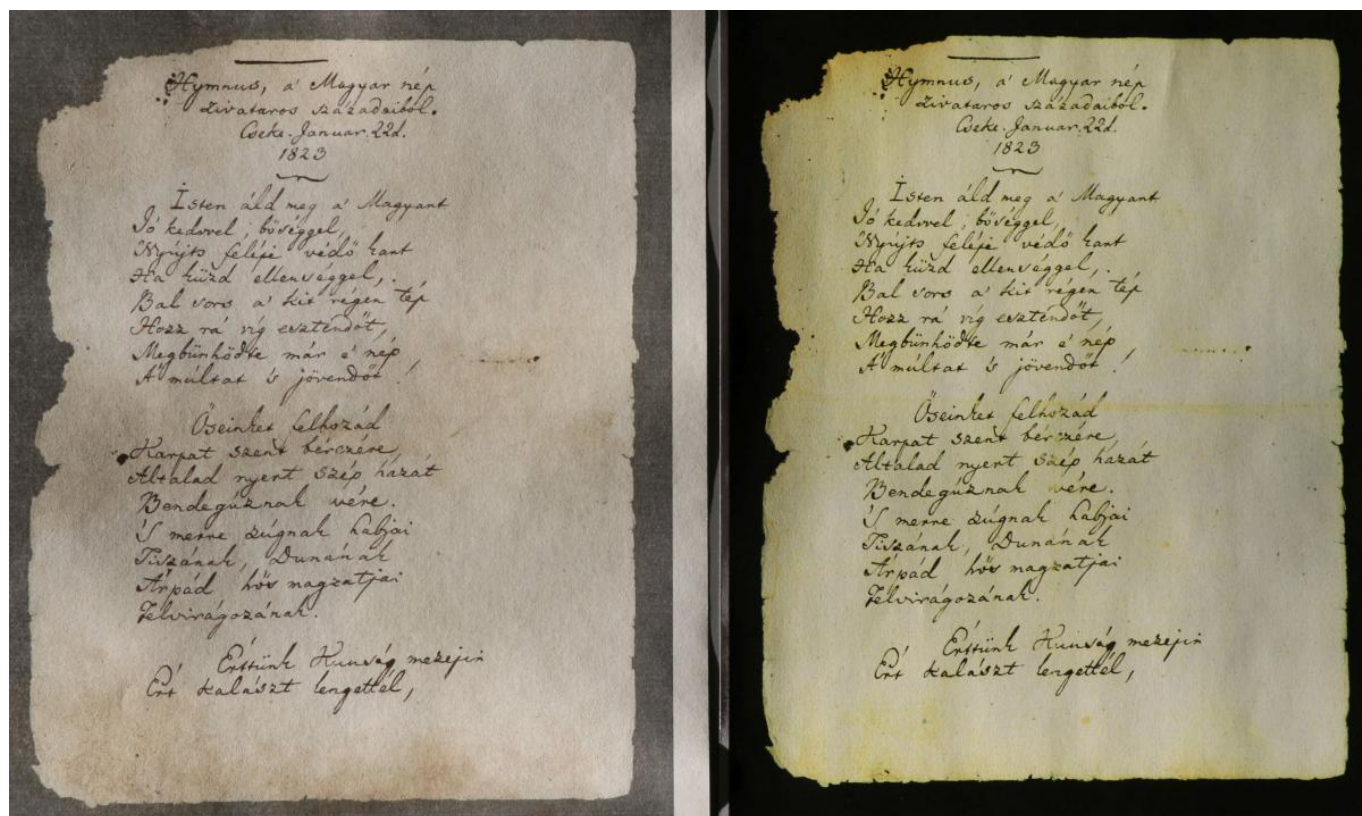 Hymnus, a' Magyar nép
zivataros századaiból.
Cseke. Januar. 22d.
1823
Isten áld meg a' Magyart
Jó kedvvel, bőséggel,
Nyújts feléje védő kart
Ha küzd ellenséggel,
Bal sors a' kit régen tép
Hozz rá víg esztendőt,
Megbünhödte már e' nép
A' múltat 's jövendőt!
Őseinket felhozád
Kárpát szent bérczére,
Általad nyert szép hazát
Bendegúznak vére.
'S merre zúgnak habjai
Tiszának, Dunának
Árpád hős magzatjai
Felvirágozának.
Értünk Kunság mezejin
Ért kalászt lengettél,
Hymnus, a' Magyar nép
zivataros századaiból.
Cseke. Januar. 22d.
1823
Isten áld meg a' Magyart
Jó kedvvel, bőséggel,
Nyújts feléje védő kart
Ha küzd ellenséggel,
Bal sors a' kit régen tép
Hozz rá víg esztendőt,
Megbünhödte már e' nép
A' múltat 's jövendőt!
Őseinket felhozád
Kárpát szent bérczére,
Általad nyert szép hazát
Bendegúznak vére.
'S merre zúgnak habjai
Tiszának, Dunának
Árpád hős magzatjai
Felvirágozának.
Értünk Kunság mezejin
Ért kalászt lengettél,